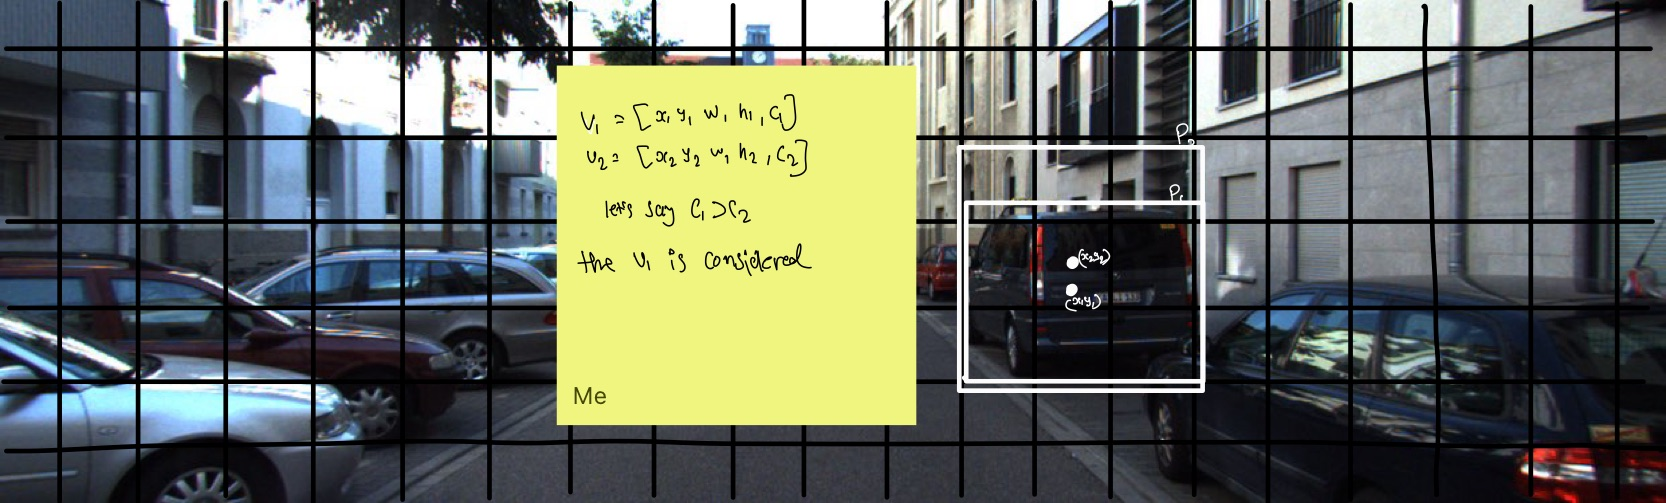 V₁ = [x₁ y₁ w₁ h₁, C₁]
V₂ = [x₂ y₂ w₁ h₂, C₂]
let's say C₁ > C₂
the V₁ is considered
Me
P₂
P₁
(x₂y₂)
(x₁y₁)